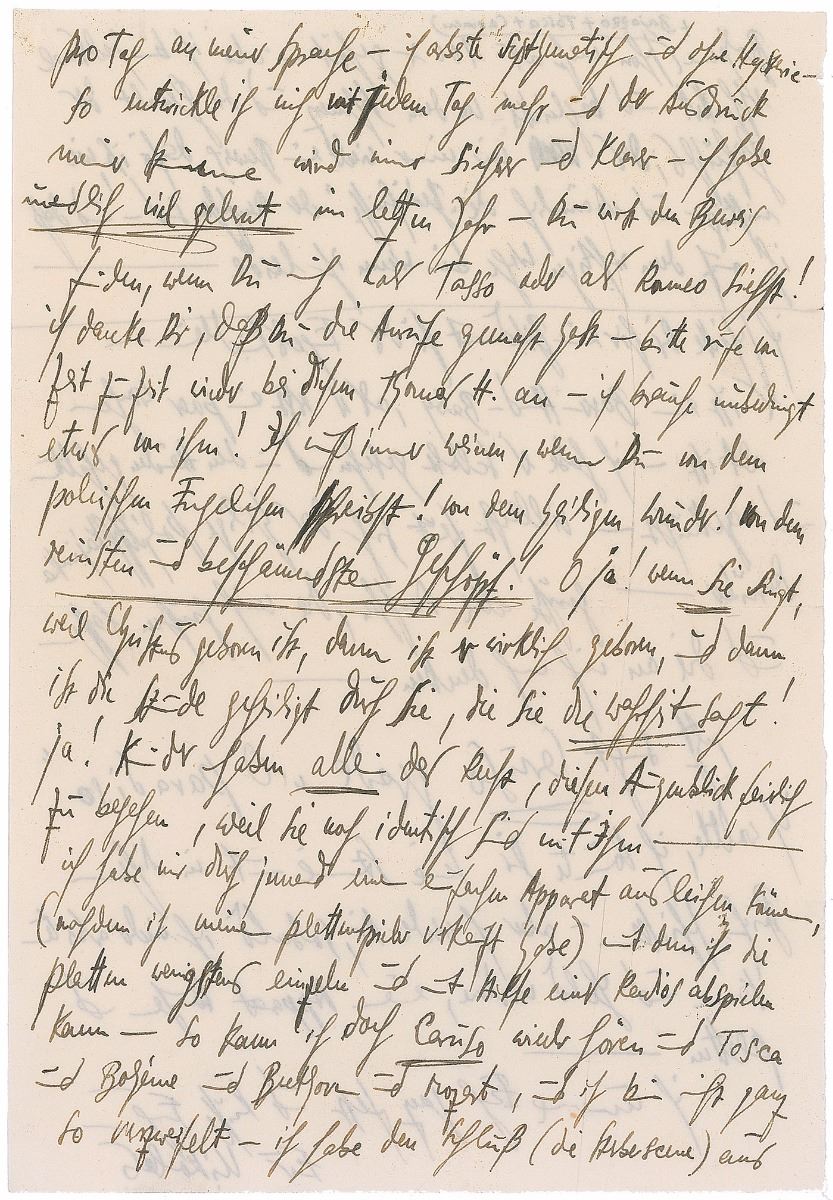 pro Tag an meiner Sprache – ich arbeite systematisch und ohne Hysterie –
so entwickle ich mich mit jedem Tag mehr und der Ausdruck
meiner Stimme wird immer sicherer und klarer – ich habe
unendlich viel gelernt im letzten Jahr – Du wirst den Beweis
finden, wenn Du mich als Tasso oder als Romeo siehst!
ich danke Dir, daß Du die Anrufe gemacht hast – bitte rufe von
Zeit zu Zeit wieder bei diesem Thomas H. an – ich brauche unbedingt
etwas von ihm! Ich muß immer weinen, wenn Du von dem
polnischen Engelchen schreibst! von dem heiligen Wunder! Von dem
reinsten und beschämendsten Geschöpf! O ja! wenn sie singt,
weil Christus geboren ist, dann ist er wirklich geboren, und dann
ist die Sünde geheiligt durch Sie, die Sie die Wahrheit sagt!
ja! Kinder haben alle das Recht, diesen Augenblick feierlich
zu begehen, weil sie noch identisch sind mit Ihm ——
ich habe mir durch jemand einen einfachen Apparat ausleihen können,
(nachdem ich meine Plattenspieler verkauft habe) mit dem ich die
Platten wenigstens einzeln und mit Hilfe eines Radios abspielen
kann — so kann ich doch Caruso wieder hören und Tosca
und Bohéme und Beethoven und Mozart, und ich bin nicht ganz
so verzweifelt – ich habe den Schluß (die Sterbescene) aus